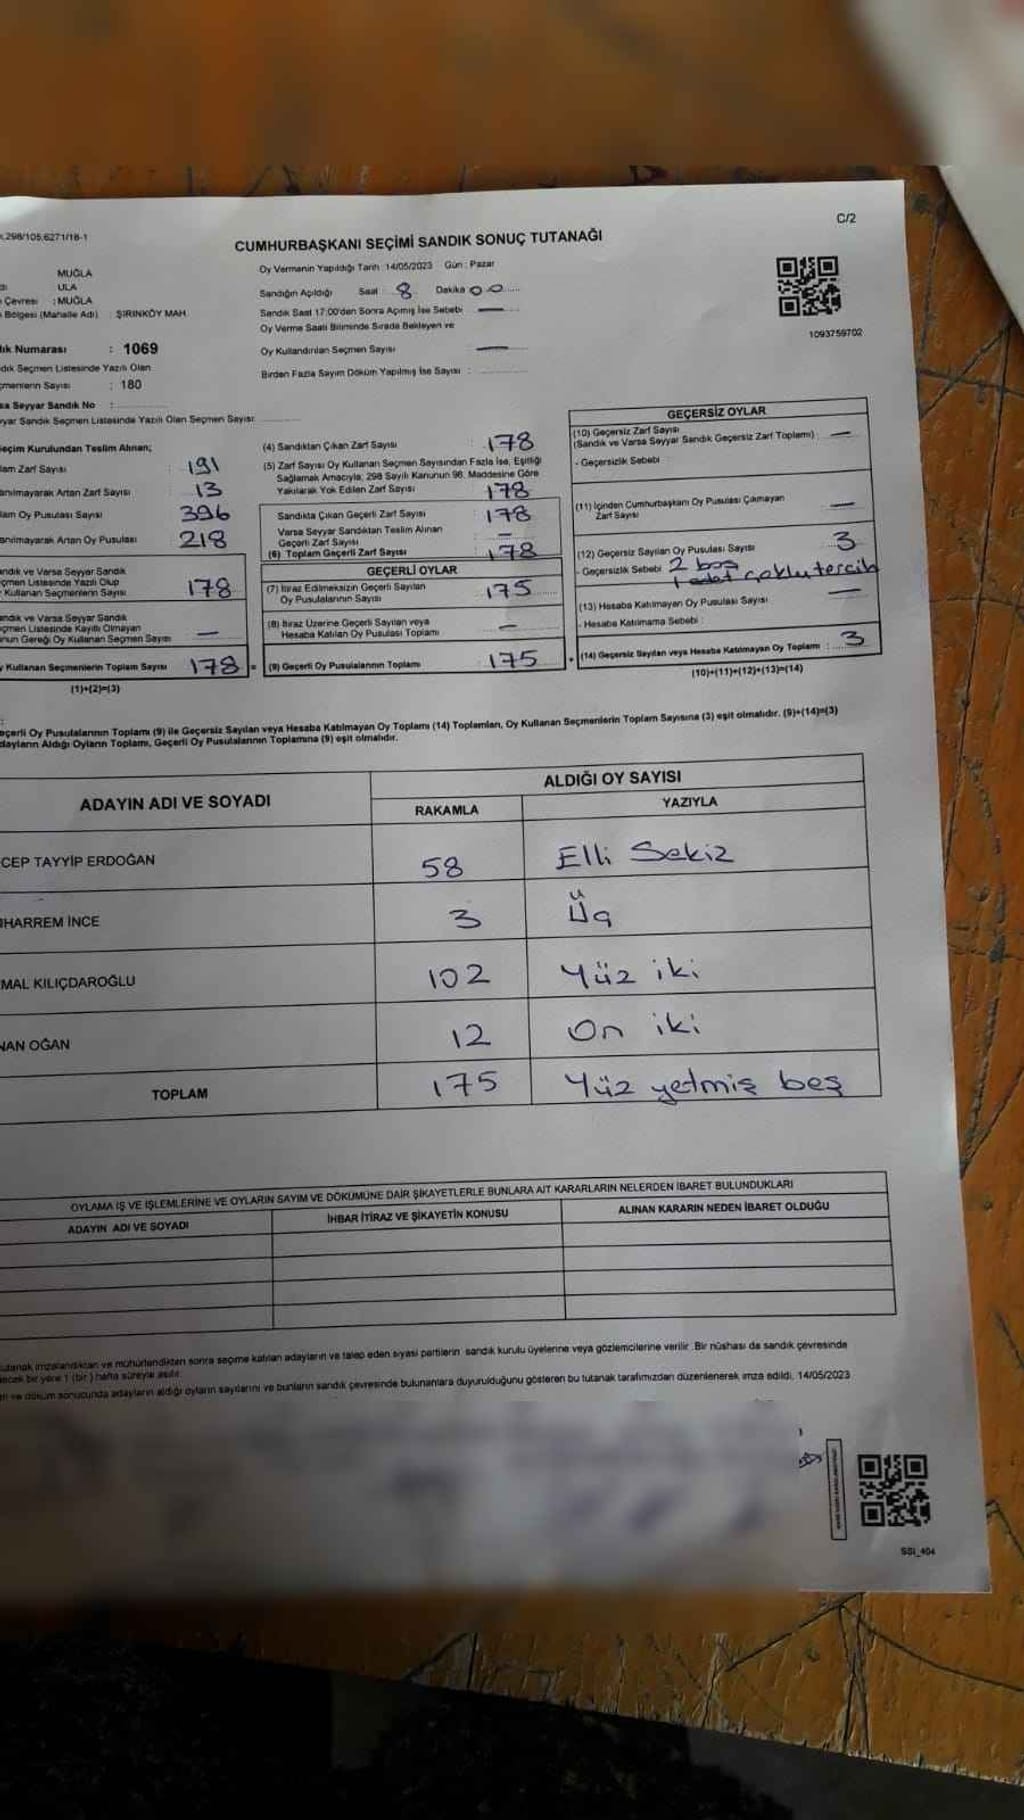 C/2
298/105,6271/18-1
CUMHURBAŞKANI SEÇİMİ SANDIK SONUÇ TUTANAĞI
MUĞLA
ULA
Çevresi : MUĞLA
Bölgesi (Mahalle Adı) : ŞİRİNKÖY MAH.
Numarası : 1069
Seçmen Listesinde Yazılı Olan
Sayısı : 180
Seyyar Sandık No :
Sandık Seçmen Listesinde Yazılı Olan Seçmen Sayısı:
Oy Vermenin Yapıldığı Tarih :14/05/2023 Gün : Pazar
Sandığın Açıldığı Saat 8 Dakika 00
Sandık Saat 17:00'den Sonra Açımış İse Sebebi —
Oy Verme Saati Bitiminde Sırada Bekleyen ve
Oy Kullandırılan Seçmen Sayısı —
Birden Fazla Sayım Döküm Yapılmış İse Sayısı :
1093759702
Kurulundan Teslim Alınan;
Zarf Sayısı : 191
Artan Zarf Sayısı : 13
Oy Pusulası Sayısı 396
Artan Oy Pusulası : 218
ve Varsa Seyyar Sandık
Listesinde Yazılı Olup
Kullanan Seçmenlerin Sayısı 178
ve Varsa Seyyar Sandık
Listesinde Kayıtlı Olmayan
Gereği Oy Kullanan Seçmen Sayısı —
Kullanan Seçmenlerin Toplam Sayısı 178 =
(1)+(2)=(3)
(4) Sandıktan Çıkan Zarf Sayısı : 178
(5) Zarf Sayısı Oy Kullanan Seçmen Sayısından Fazla İse, Eşitliği
Sağlamak Amacıyla, 298 Sayılı Kanunun 98. Maddesine Göre
Yakılarak Yok Edilen Zarf Sayısı : 178
Sandıkta Çıkan Geçerli Zarf Sayısı : 178
Varsa Seyyar Sandıktan Teslim Alınan
Geçerli Zarf Sayısı : —
(6) Toplam Geçerli Zarf Sayısı : 178
GEÇERLİ OYLAR
(7) İtiraz Edilmeksizin Geçerli Sayılan
Oy Pusulalarının Sayısı : 175
(8) İtiraz Üzerine Geçerli Sayılan veya
Hesaba Katılan Oy Pusulası Toplamı : —
(9) Geçerli Oy Pusulalarının Toplamı : 175 +
GEÇERSİZ OYLAR
(10) Geçersiz Zarf Sayısı
(Sandık ve Varsa Seyyar Sandık Geçersiz Zarf Toplamı) : —
- Geçersizlik Sebebi :
(11) İçinden Cumhurbaşkanı Oy Pusulası Çıkmayan
Zarf Sayısı —
(12) Geçersiz Sayılan Oy Pusulası Sayısı : 3
- Geçersizlik Sebebi 2 boş
1 adet çoklu tercih
(13) Hesaba Katılmayan Oy Pusulası Sayısı : —
- Hesaba Katılmama Sebebi :
(14) Geçersiz Sayılan veya Hesaba Katılmayan Oy Toplamı : 3
(10)+(11)+(12)+(13)=(14)
Geçerli Oy Pusulalarının Toplamı (9) ile Geçersiz Sayılan veya Hesaba Katılmayan Oy Toplamı (14) Toplamları, Oy Kullanan Seçmenlerin Toplam Sayısına (3) eşit olmalıdır. (9)+(14)=(3)
Adayların Aldığı Oyların Toplamı, Geçerli Oy Pusulalarının Toplamına (9) eşit olmalıdır.
ADAYIN ADI VE SOYADI
ALDIĞI OY SAYISI
RAKAMLA YAZIYLA
CEP TAYYİP ERDOĞAN 58 Elli Sekiz
HARREM İNCE 3 Üç
MAL KILIÇDAROĞLU 102 Yüz iki
NAN OĞAN 12 On iki
TOPLAM 175 Yüz yetmiş beş
OYLAMA İŞ VE İŞLEMLERİNE VE OYLARIN SAYIM VE DÖKÜMÜNE DAİR ŞİKAYETLERLE BUNLARA AİT KARARLARIN NELERDEN İBARET BULUNDUKLARI
ADAYIN ADI VE SOYADI İHBAR İTİRAZ VE ŞİKAYETİN KONUSU ALINAN KARARIN NEDEN İBARET OLDUĞU
imzalandıktan ve mühürlendikten sonra seçime katılan adayların ve talep eden siyasi partilerin sandık kurulu üyelerine veya gözlemcilerine verilir. Bir nüshası da sandık çevresinde
bir yere 1 (bir) hafta süreyle asılır.
ve döküm sonucunda adayların aldığı oyların sayılarını ve bunların sandık çevresinde bulunanlara duyurulduğunu gösteren bu tutanak tarafımızdan düzenlenerek imza edildi. 14/05/2023
SSI_404